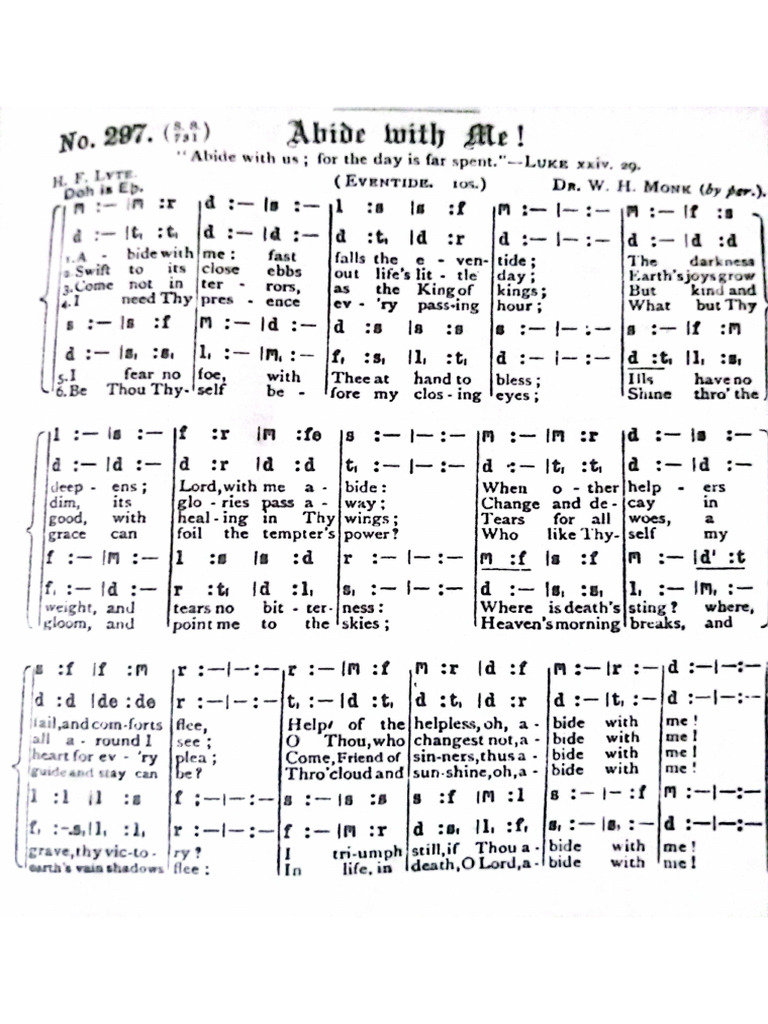 No. 297. (S. S. 731) Abide with Me!
"Abide with us; for the day is far spent."—LUKE xxiv. 29.
H. F. LYTE. (EVENTIDE. 10s.) DR. W. H. MONK (by per.).
Doh is Eb.
m :— |m :r | d :— |s :— | l :s |s :f | m :— |— :— | m :— |f :s
d :— |t, :t, | d :— |d :— | d :t, |d :r | d :— |— :— | d :— |d :d
1.A - bide with me: fast falls the e - ven- tide; The darkness
2.Swift to its close ebbs out life's lit - tle day; Earth's joys grow
3.Come not in ter - rors, as the King of kings; But kind and
4.I need Thy pres - ence ev - 'ry pass-ing hour; What but Thy
s :— |s :f | m :— |d :— | d :s |s :s | s :— |— :— | s :— |f :m
d :— |s, :s, | l, :— |m, :— | f, :s, |l, :t, | d :— |— :— | d :t, |l, :s,
5.I fear no foe, with Thee at hand to bless; Ills have no
6.Be Thou Thy- self be - fore my clos - ing eyes; Shine thro' the
l :— |s :— | f :r |m :fe | s :— |— :— | m :— |m :r | d :— |s :—
d :— |d :— | d :r |d :d | t, :— |— :— | d :— |t, :t, | d :— |d :—
deep - ens; Lord, with me a - bide: When o - ther help - ers
dim, its glo - ries pass a - way; Change and de - cay in
good, with heal - ing in Thy wings; Tears for all woes, a
grace can foil the tempter's power? Who like Thy- self my
f :— |m :— | l :s |s :d | r :— |— :— | m :f |s :f | m :— |d' :t
f, :— |d :— | r :t, |d :l, | s, :— |— :— | d :— |s, :s, | l, :— |m, :—
weight, and tears no bit - ter- ness: Where is death's sting? where,
gloom, and point me to the skies; Heaven's morning breaks, and
s :f |f :m | r :—|—:— | r :— |m :f | m :r |d :f | m :— |r :— | d :—|—:—
d :d |de :de | r :—|—:— | t, :— |d :t, | d :t, |d :r | d :— |t, :— | d :—|—:—
fail, and com-forts flee, Help of the helpless, oh, a - bide with me!
all a - round I see; O Thou, who changest not, a - bide with me!
heart for ev - 'ry plea; Come, Friend of sin-ners, thus a - bide with me!
guide and stay can be? Thro' cloud and sun-shine, oh, a - bide with me!
l :l |l :s | f :—|—:— | s :— |s :s | s :f |m :l | s :— |— :f | m :—|—:—
f, :-.s,|l, :l, | r :—|—:— | f :— |m :r | d :s, |l, :f, | s, :— |s, :— | d :—|—:—
grave, thy vic-to - ry? I tri-umph still, if Thou a - bide with me!
earth's vain shadows flee: In life, in death, O Lord, a - bide with me!